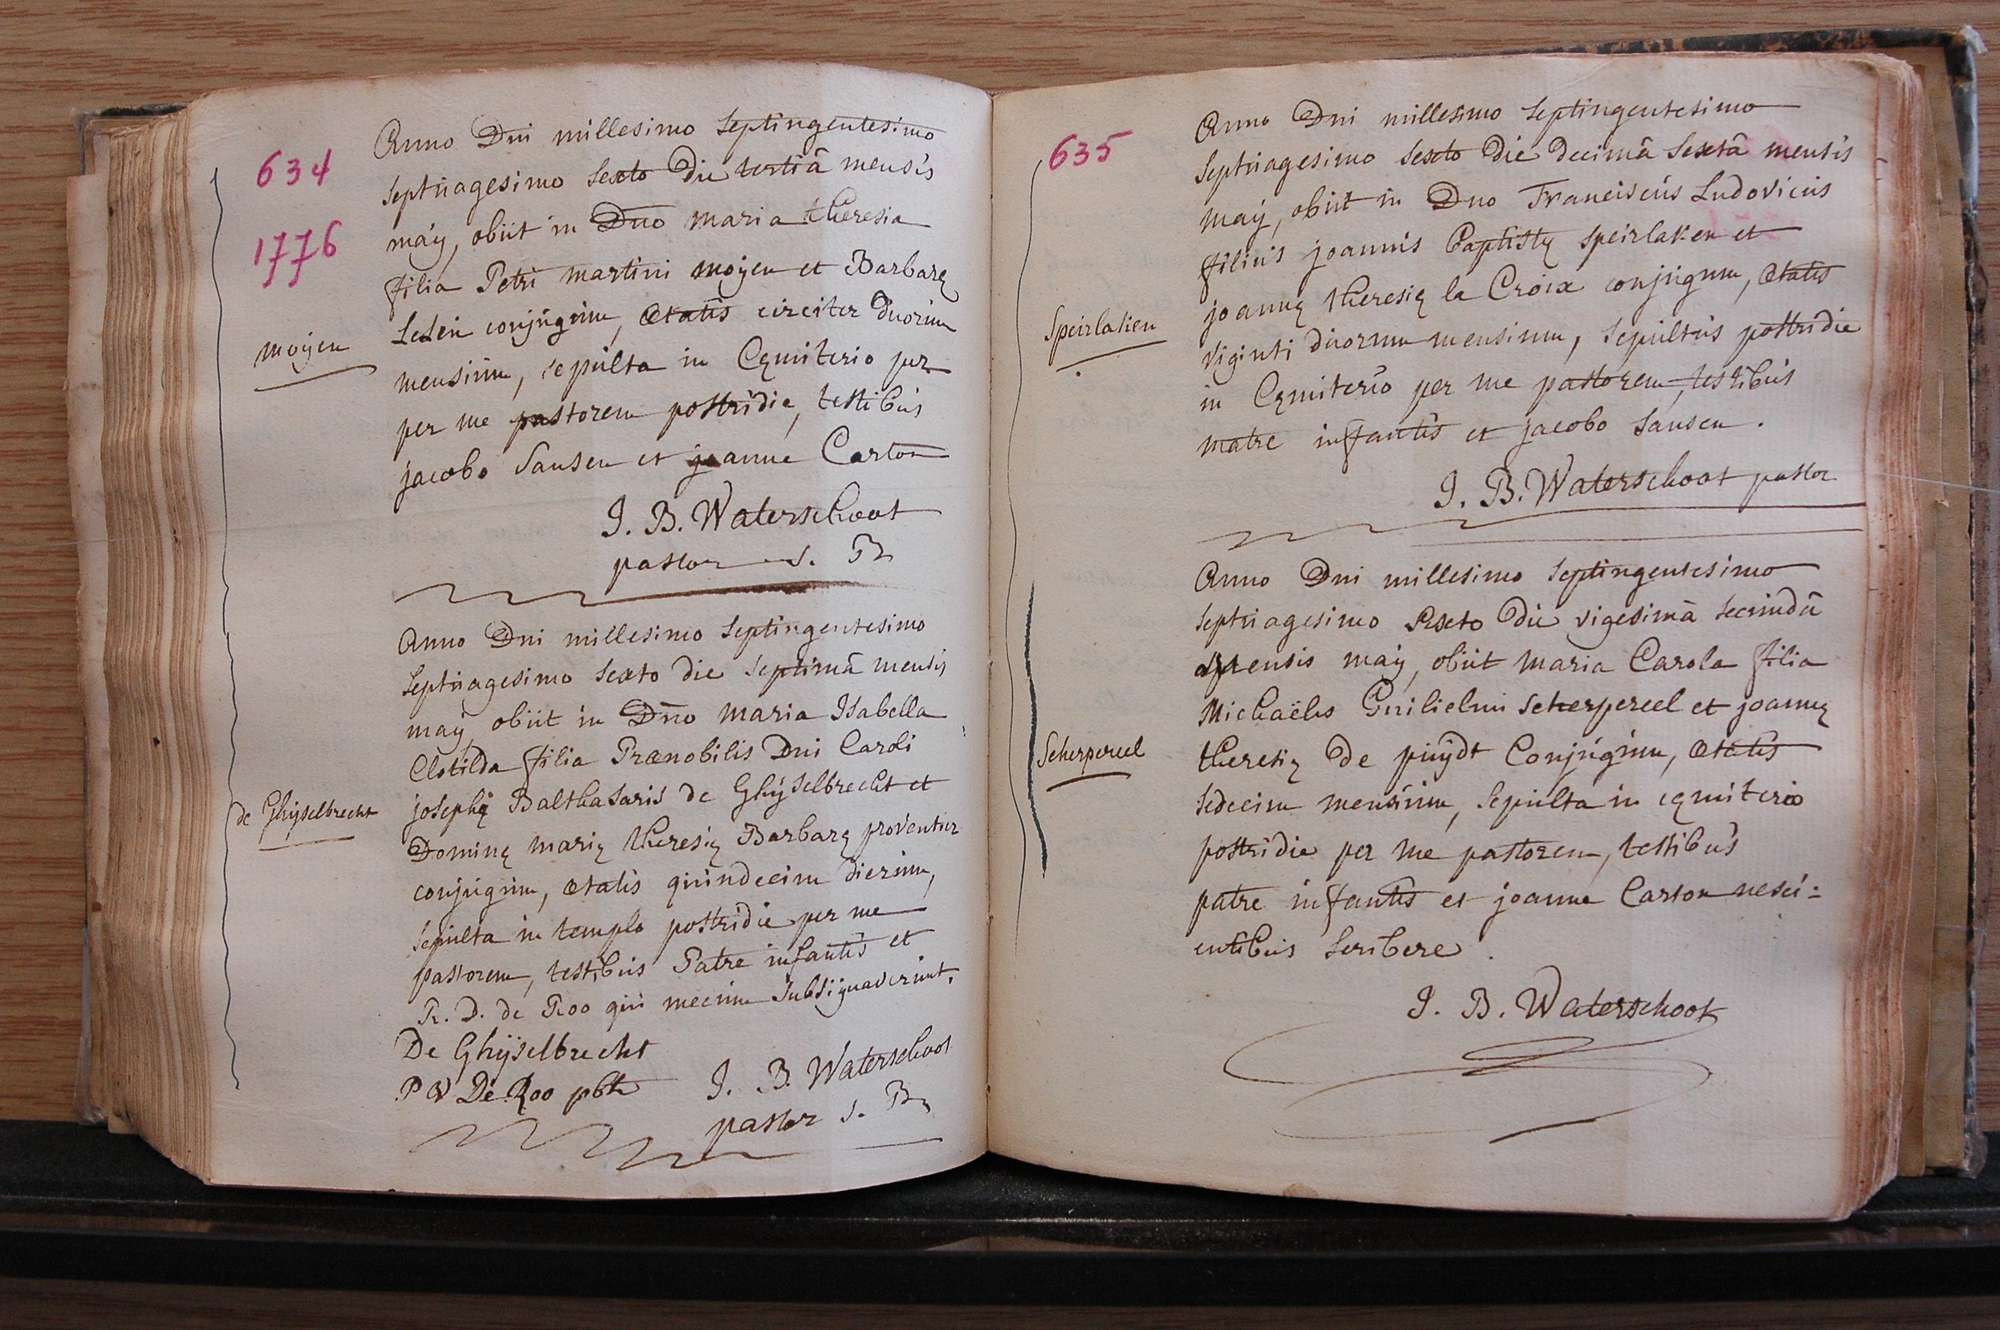 634
1776
Anno Dni millesimo septingentesimo
septuagesimo sexto die tertiâ mensis
maÿ, obiit in Dno maria theresia
filia Petri martini moÿen et Barbarę
conjugum, ætatis circiter duorum
mensium, sepulta in Cęmiterio per
per me pastorem postridie, testibus
jacobo Sansen et joanne Carton
J. B. Waterschoot
pastor s. B
moÿen
Anno Dni millesimo septingentesimo
septuagesimo sexto die septimâ mensis
maÿ, obiit in Dno maria Isabella
Clotilda filia Prænobilis Dni Caroli
josephi Balthasaris de Ghÿselbrecht et
Dominę marię theresię Barbarę proventier
conjugum, ætatis quindecim dierum,
sepulta in templo postridie per me
pastorem, testibus Patre infantis et
R. D. de Roo qui mecum subsignaverunt.
De Ghÿselbrecht
P V De Roo pbtr
J. B. Waterschoot
pastor s. B
de Ghÿselbrecht
635
Anno Dni millesimo septingentesimo
septuagesimo sexto die decimâ sextâ mensis
maÿ, obiit in Dno Franciscus Ludovicus
filius joannis Baptistę speirlaken et
joannę theresię la Croix conjugum, ætatis
viginti duorum mensium, sepultus postridie
in Cęmiterio per me pastorem, testibus
matre infantis et jacobo Sansen.
J. B. Waterschoot pastor
Speirlaken
Anno Dni millesimo septingentesimo
septuagesimo sexto die vigesimâ secundâ
mensis maÿ, obiit maria Carola filia
Michaëlis Guilielmi Scherpereel et joannę
theresię de puÿdt Conjugum, ætatis
sedecim mensium, sepulta in cęmiterio
postridie per me pastorem, testibus
patre infantis et joanne Carton nesci=
entibus scribere.
J. B. Waterschoot
Scherpereel